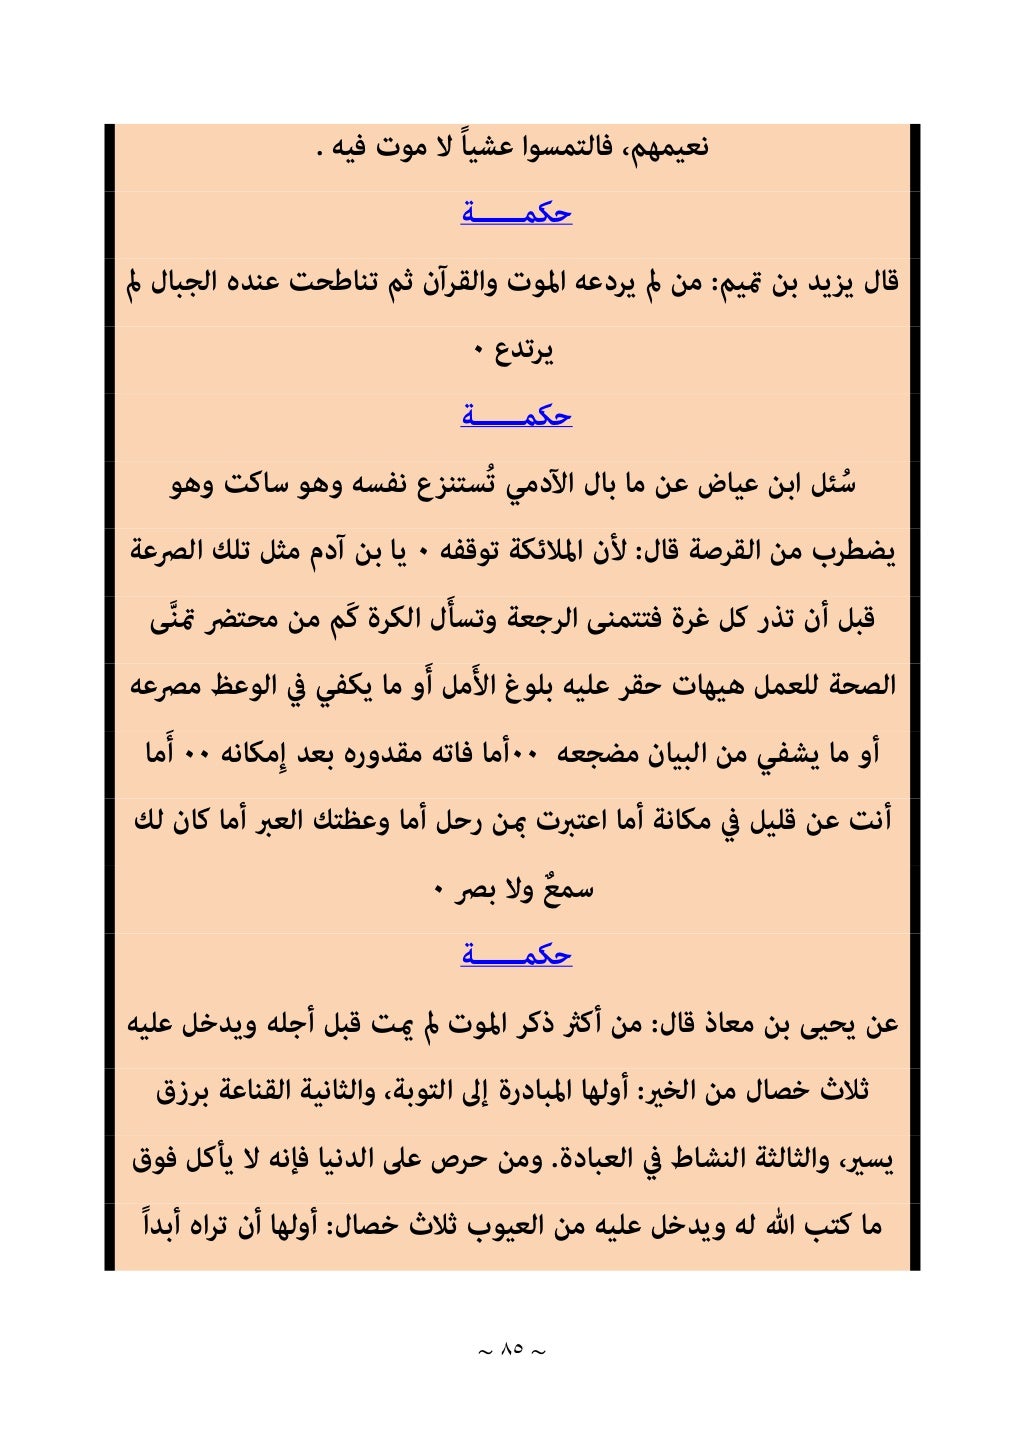 نعيمهم، فالتمسوا عشياً لا موت فيه .
حكمـــــــة
قال يزيد بن تميم: من لم يردعه الموت والقرآن ثم تناطحت عنده الجبال لم
يرتدع ٠
حكمـــــــة
سُئل ابن عياض عن ما بال الآدمي تُستنزع نفسه وهو ساكت وهو
يضطرب من القرصة قال: لأن الملائكة توقفه ٠ يا بن آدم مثل تلك الصرعة
قبل أن تذر كل غرة فتتمنى الرجعة وتسأَل الكرة كَم من محتضر تمنَّى
الصحة للعمل هيهات حقر عليه بلوغ الأَمل أَو ما يكفي في الوعظ مصرعه
أو ما يشفي من البيان مضجعه ٠٠أما فاته مقدوره بعد إِمكانه ٠٠ أَما
أنت عن قليل في مكانة أما اعتبرت بمن رحل أما وعظتك العبر أما كان لك
سمعٌ ولا بصر ٠
حكمـــــــة
عن يحيى بن معاذ قال: من أكثر ذكر الموت لم يمت قبل أجله ويدخل عليه
ثلاث خصال من الخير: أولها المبادرة إلى التوبة، والثانية القناعة برزق
يسير، والثالثة النشاط في العبادة. ومن حرص على الدنيا فإنه لا يأكل فوق
ما كتب الله له ويدخل عليه من العيوب ثلاث خصال: أولها أن تراه أبداً
~ ٨٥ ~